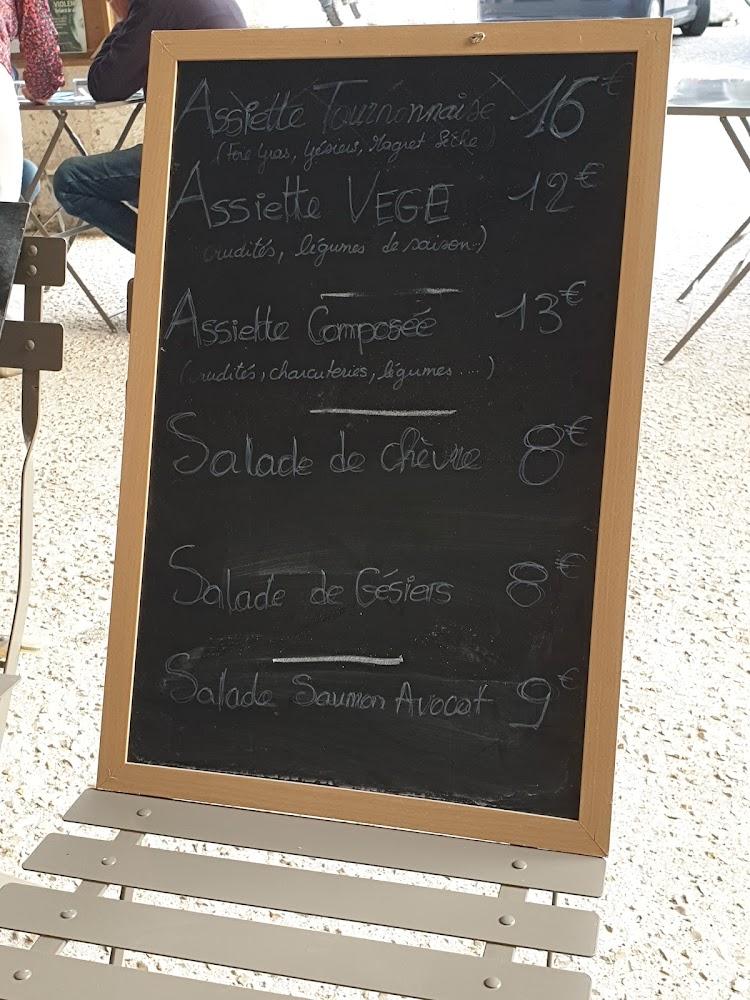 VIOLEN
Assiette Tournonnaise 16€
(Foie Gras, Gésiers, Magret Séché)
Assiette VEGE 12€
crudités, légumes de saison..)
Assiette Composée 13€
(crudités, charcuteries, légumes ...)
Salade de chèvre 8€
Salade de Gésiers 8€
Salade Saumon Avocat 9€